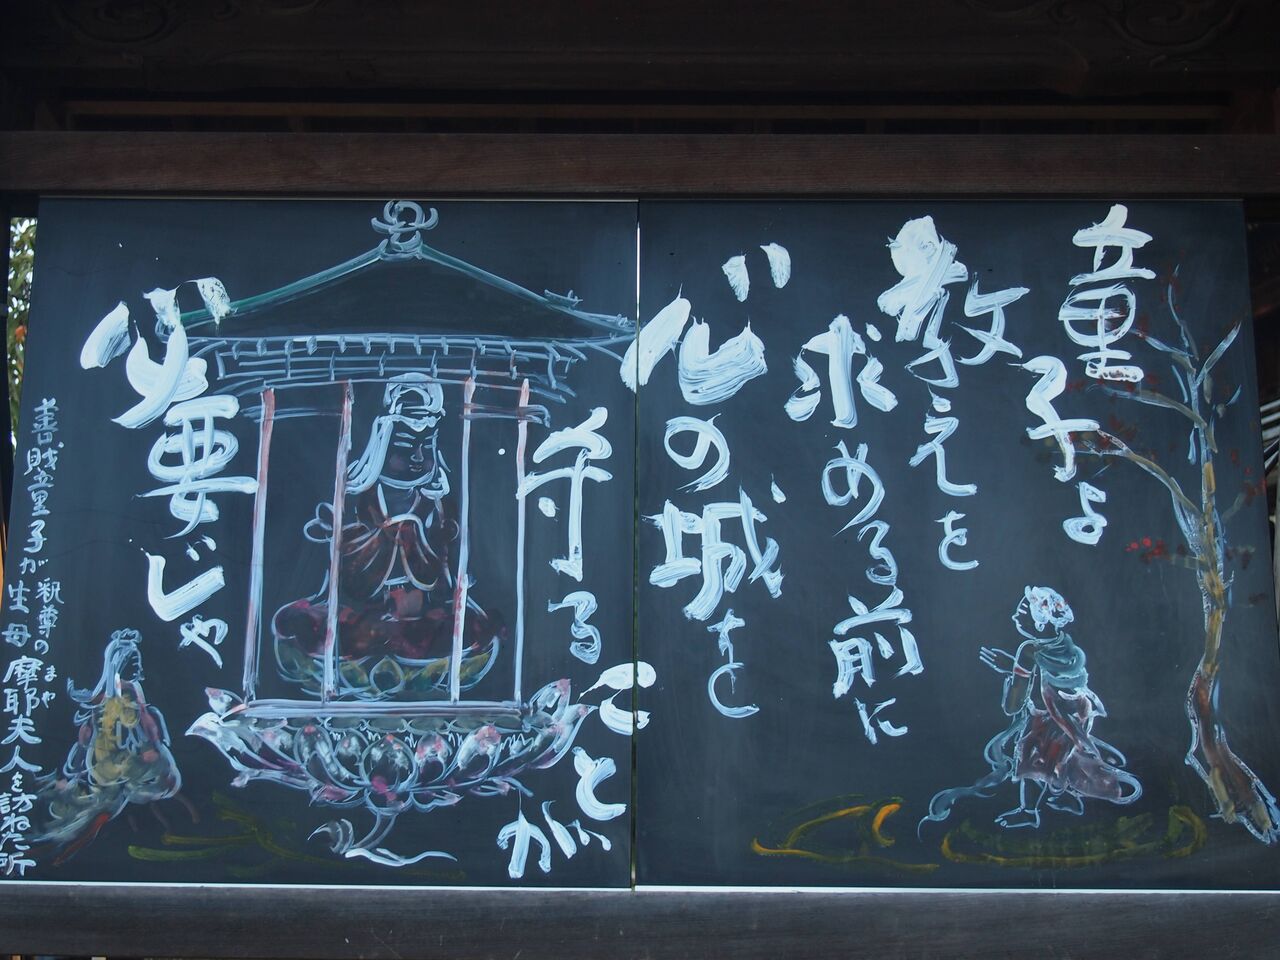 童子よ
教えを
求める前に
心の城を
守ることが
必要じゃ
善財童子が釈尊の
生母摩耶夫人を訪ねた所
まや